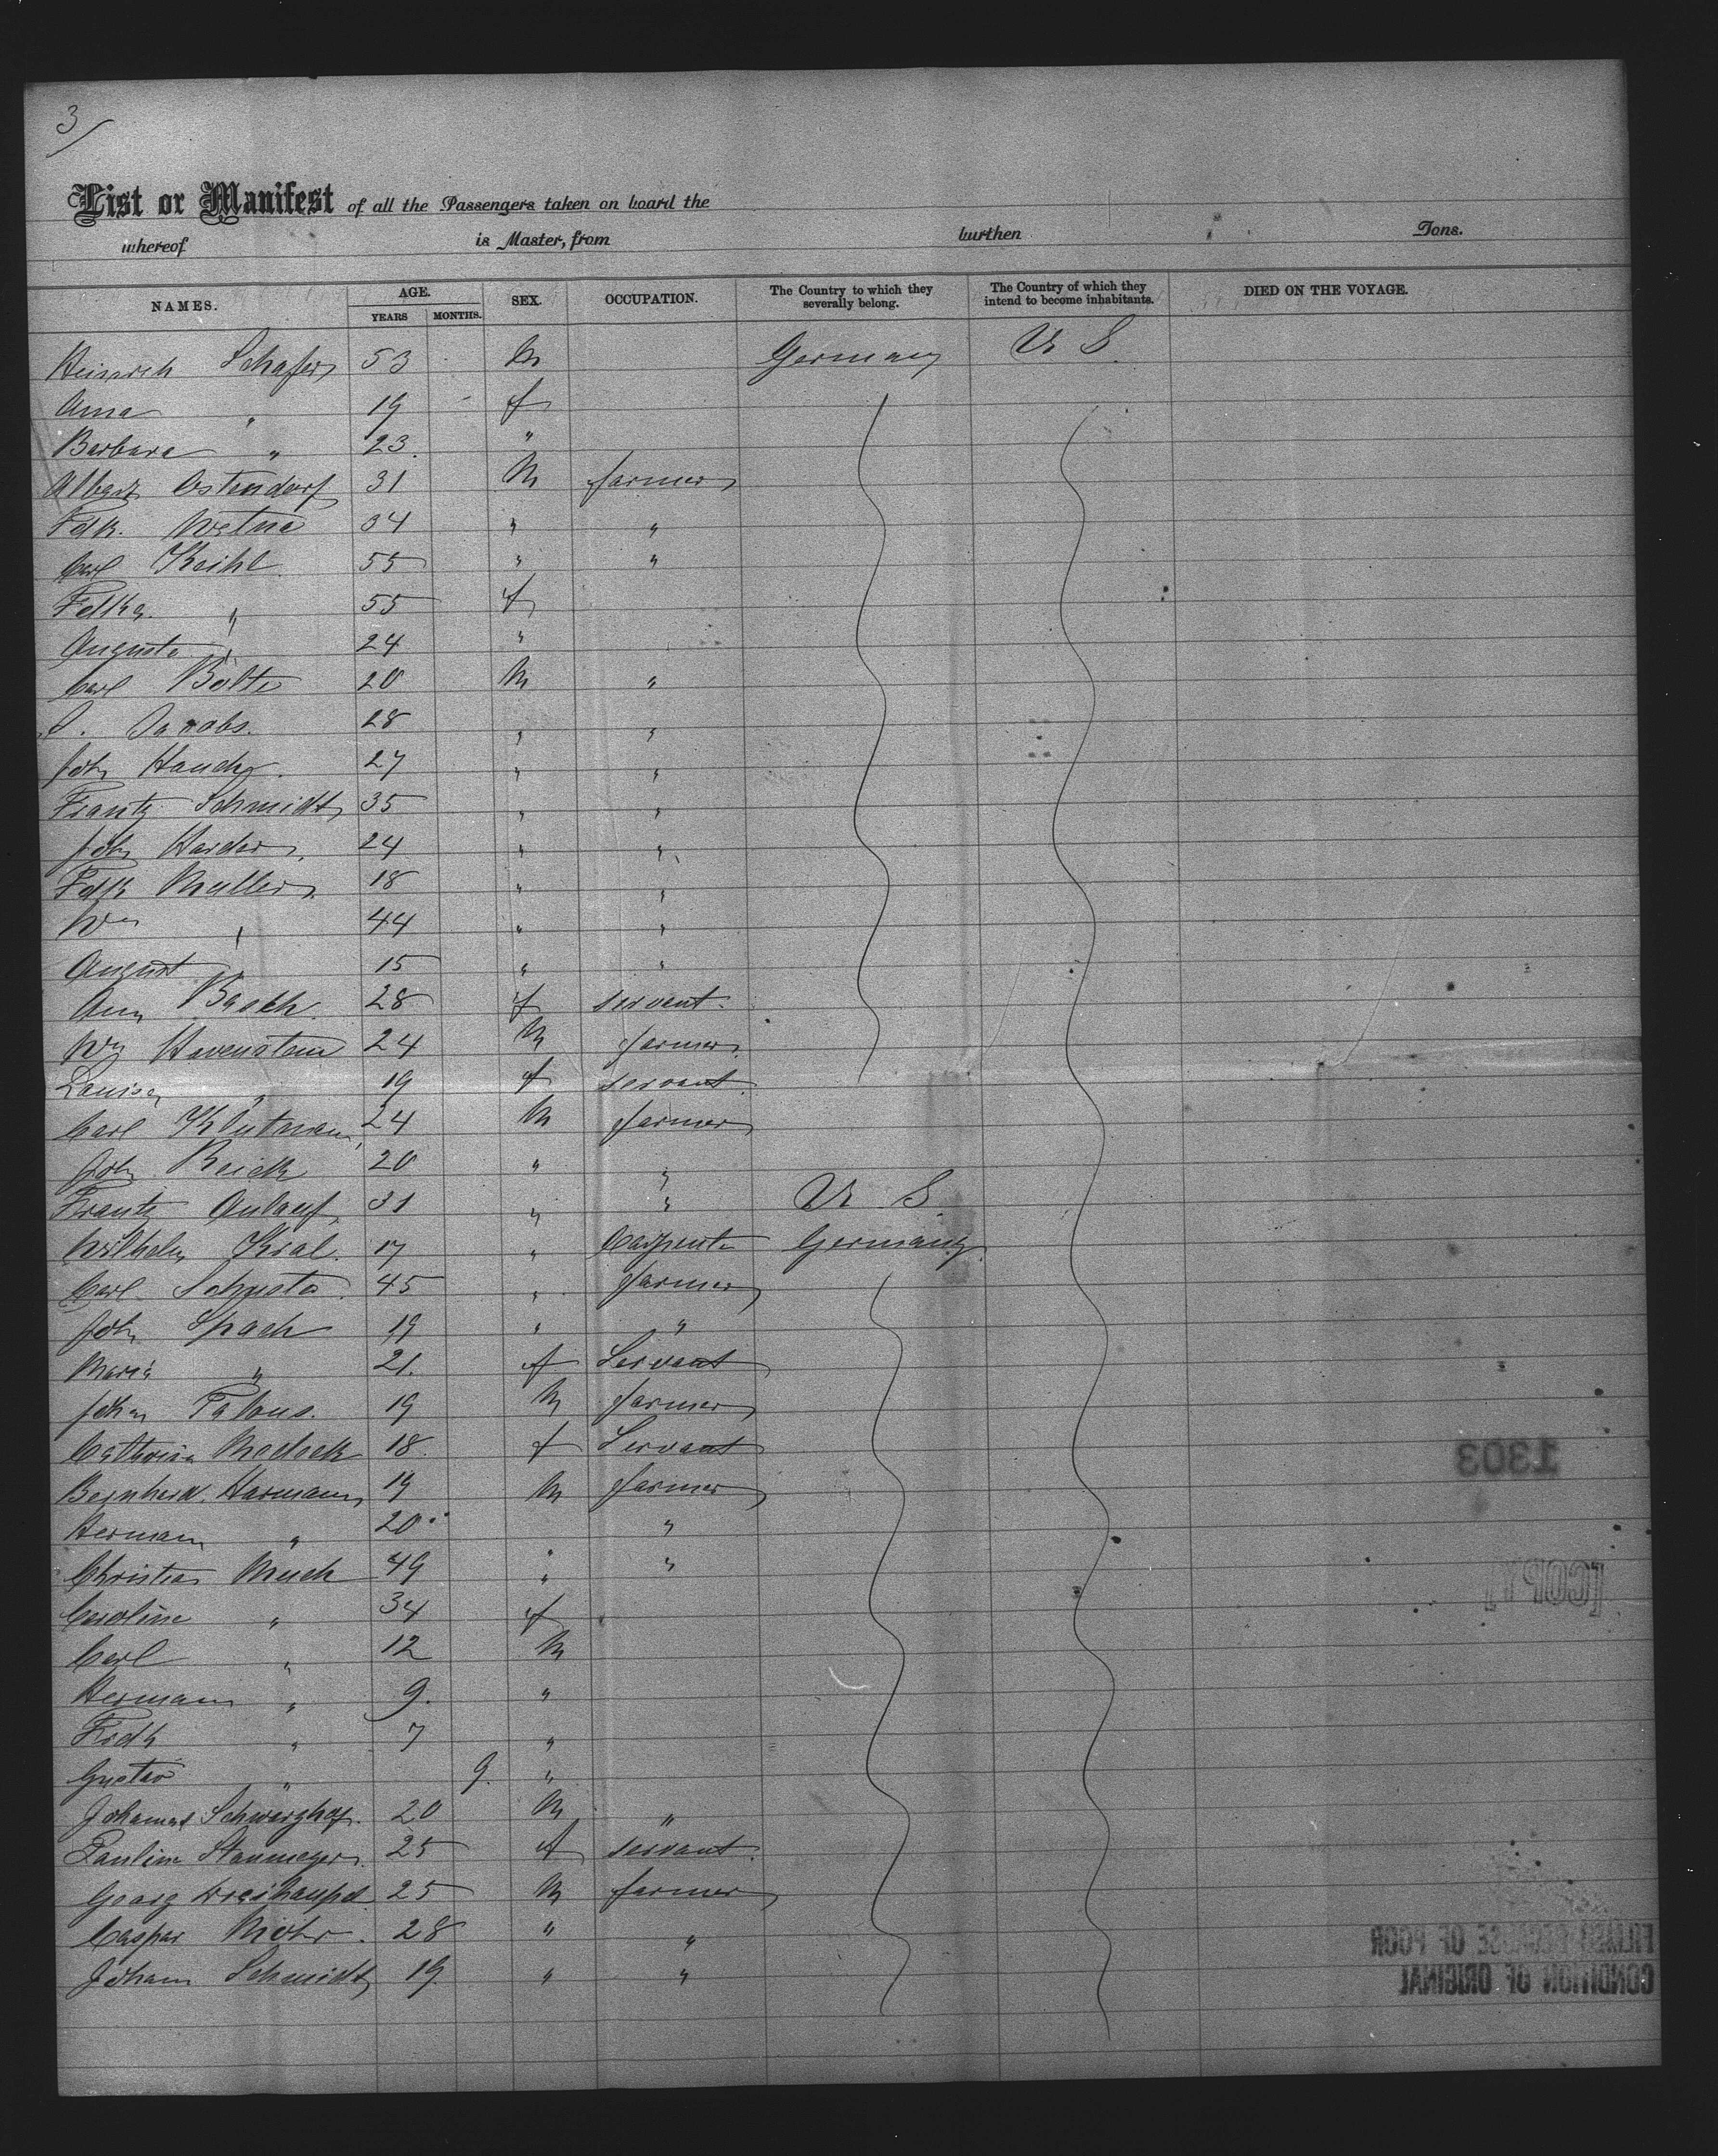 3/
List or Manifest of all the Passengers taken on board the
whereof is Master, from burthen Tons.
NAMES. AGE. YEARS MONTHS. SEX. OCCUPATION. The Country to which they severally belong. The Country of which they intend to become inhabitants. DIED ON THE VOYAGE.
Heinrich Schafer 53 M Germany U S.
Anna " 19 f
Barbara " 23. "
Albert Ostendorf 31 M farmer
Fdk. 34 " "
Carl Keihl 55 " "
Fdka. " 55 f
Augusta " 24 "
Carl Bolte 20 M "
Jacobs. 28 " "
Joh Hauch 27 " "
Frantz Schmidt 35 " "
Joh Harder. 24 " "
Fdk Muller 18 " "
Wm " 44 " "
August 15 " "
Ann 28 f servant.
Wm Havenstein 24 M farmer
Louisa " 19 f servant
Carl Klutman 24 M farmer
Joh Reick 20 " "
Frantz Anlauf 31 " " U S.
Wilhelm Kral. 17 " Carpenter Germany
Carl 45 " farmer
Joh Spach 19 " "
Maria " 21. f Servant
Johan 19 M farmer
Catharina 18. f Servant
Bernhard. Harmann 19 M farmer
Herman " 20 "
Christian Much 49 " "
Caroline " 34 f
Carl " 12 M
Herman " 9. "
Frdk " 7 "
Gustav " 9. "
Johannes 20 M "
Pauline Stanmeyer. 25 f servant.
Georg 25 M farmer
Caspar Mohr. 28 " "
Johann Schmidt 19. " "
1303
[COPY]
FILMED BECAUSE OF POOR
CONDITION OF ORIGINAL